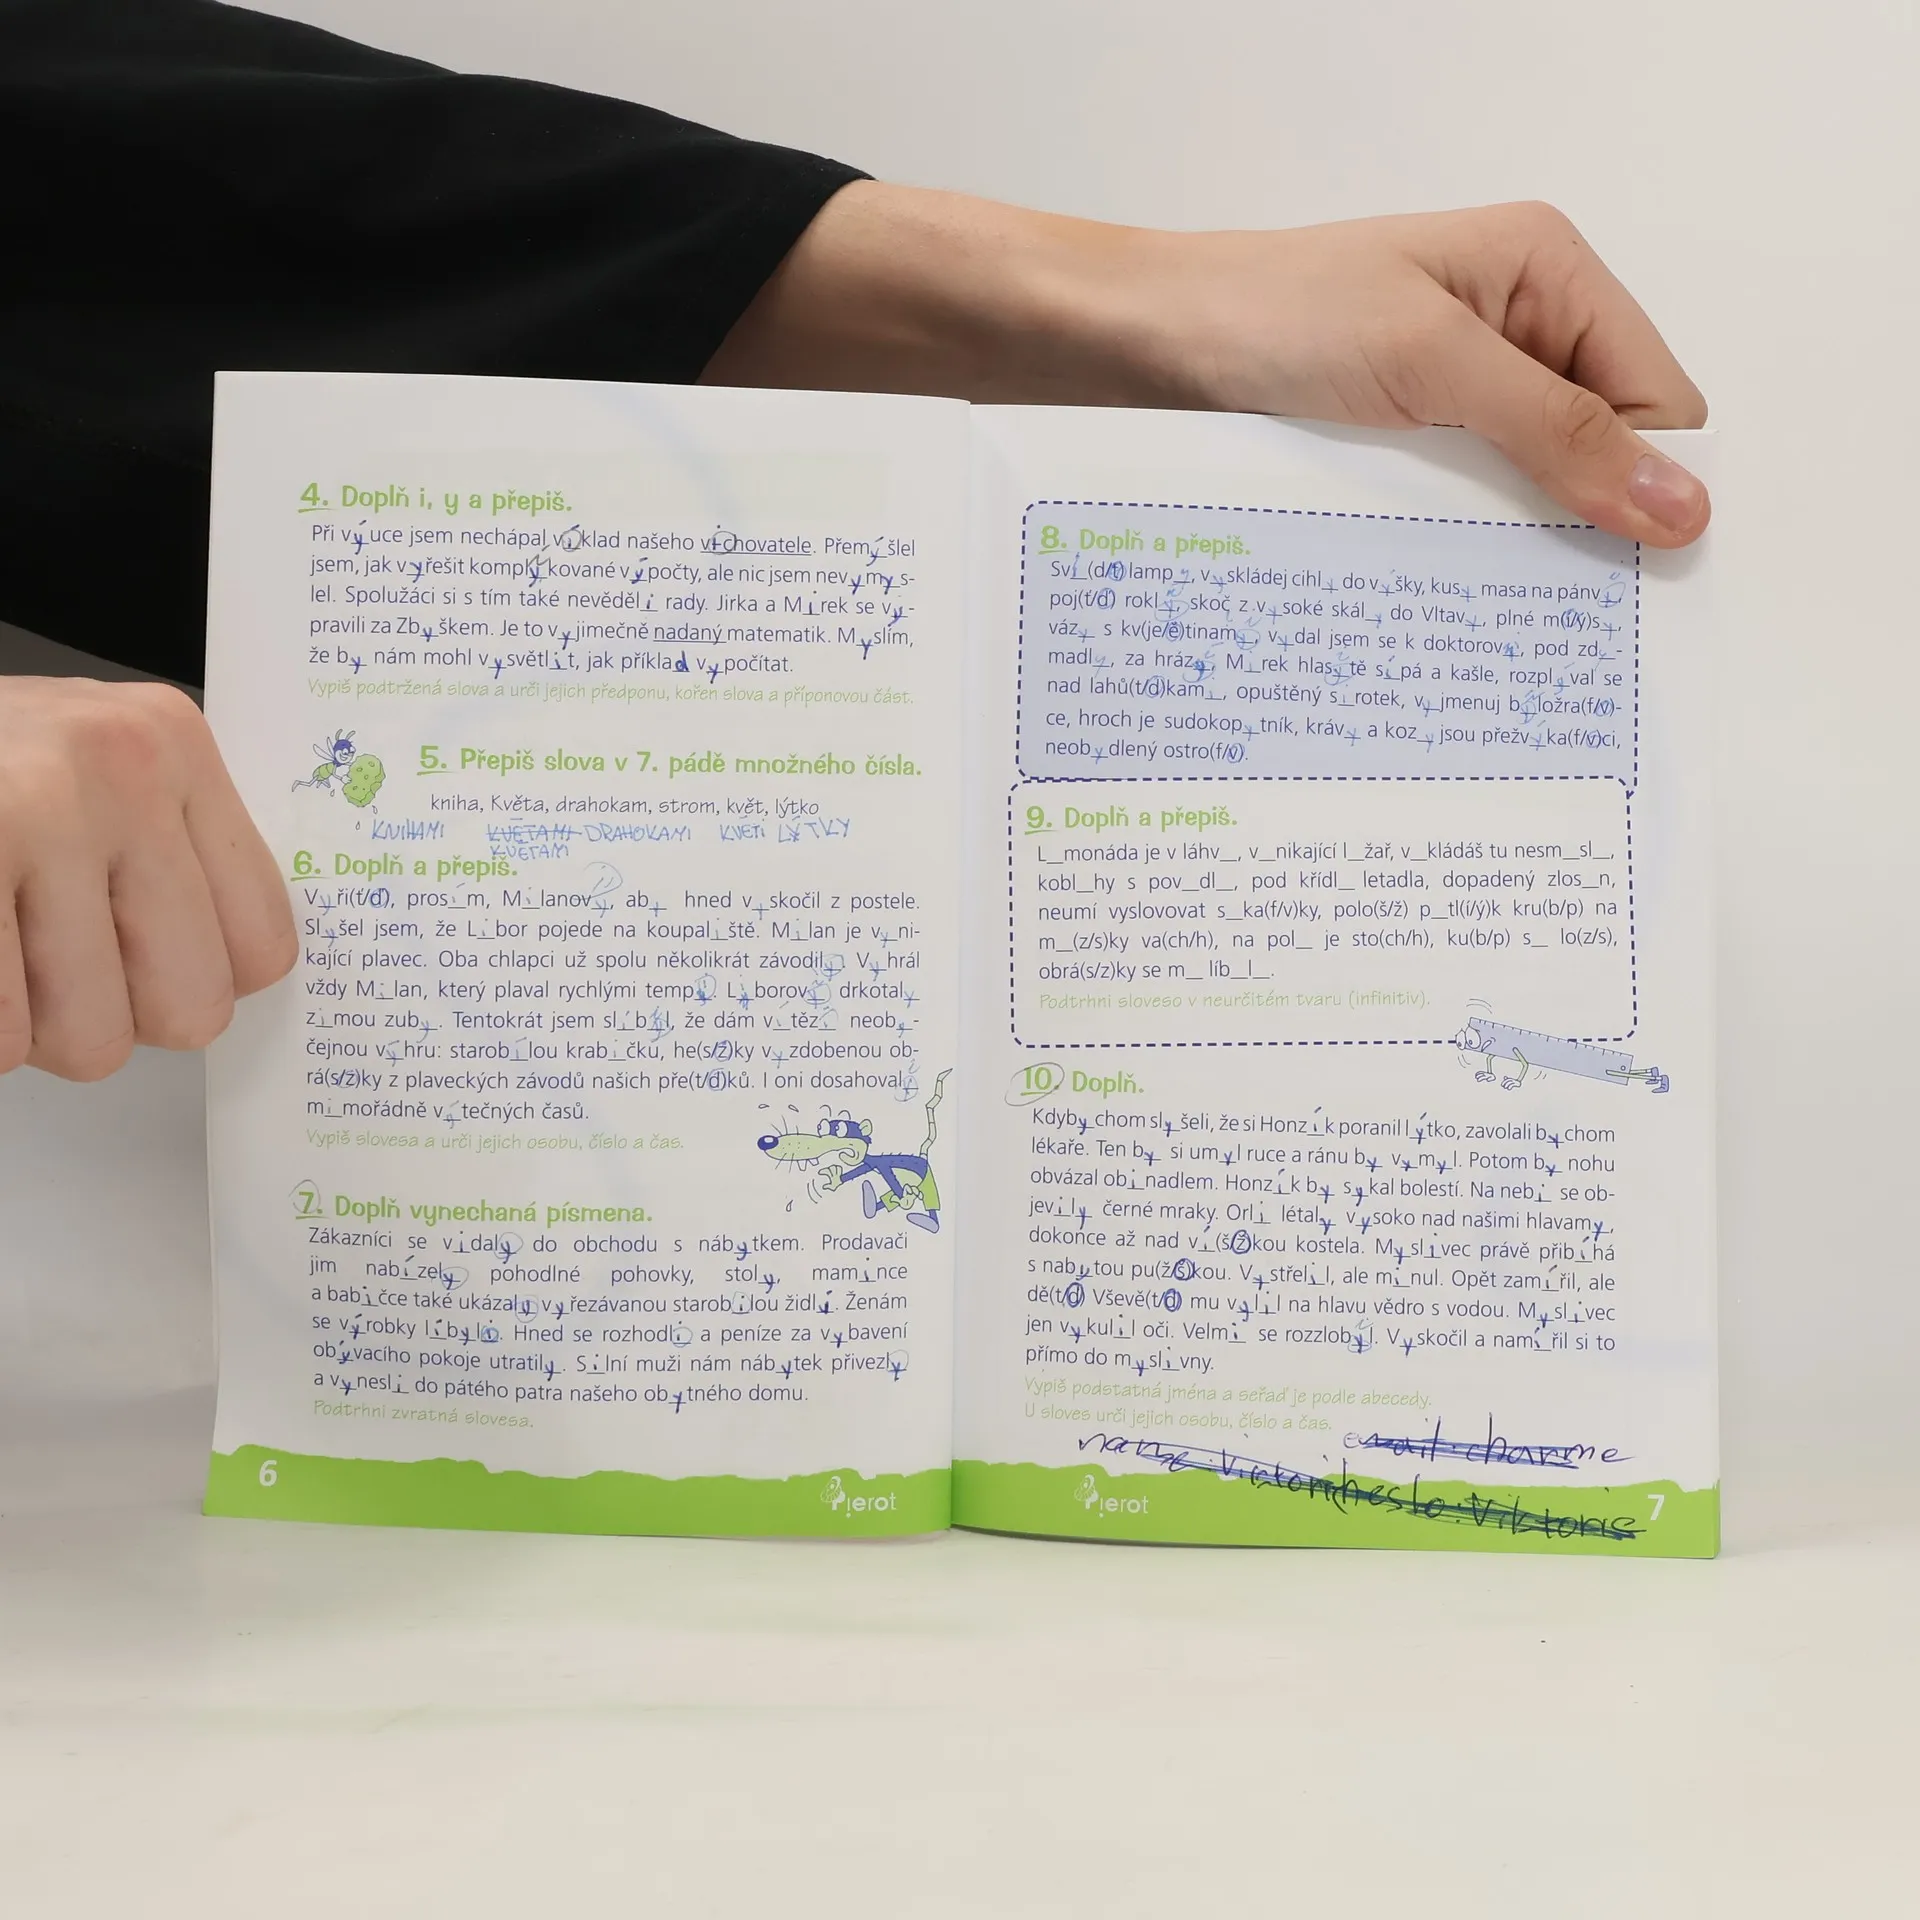 4. Doplň i, y a přepiš.
Při výuce jsem nechápal výklad našeho vychovatele. Přemýšlel
jsem, jak vyřešit komplykované výpočty, ale nic jsem nevymys-
lel. Spolužáci si s tím také nevěděli rady. Jirka a Mirek se vy-
pravili za Zbyškem. Je to vyjimečně nadaný matematik. Myslím,
že by nám mohl vysvětlit, jak příklad vypočítat.
Vypiš podtržená slova a urči jejich předponu, kořen slova a příponovou část.
5. Přepiš slova v 7. pádě množného čísla.
kniha, Květa, drahokam, strom, květ, lýtko
KNIHAMI KVĚTAMI DRAHOKAMI KVĚTI LÝTKY
KVĚTAMI
6. Doplň a přepiš.
Vyři(ť/ď), prosím, Milanovy, aby hned vyskočil z postele.
Slyšel jsem, že Libor pojede na koupaliště. Milan je vyni-
kající plavec. Oba chlapci už spolu několikrát závodily. Vyhrál
vždy Milan, který plaval rychlými tempy. Liborovy drkotaly
zimou zuby. Tentokrát jsem slíbyl, že dám vítězi neoby-
čejnou výhru: starobylou krabičku, he(s/z)ky vyzdobenou ob-
rá(s/z)ky z plaveckých závodů našich pře(t/d)ků. I oni dosahovaly
mimořádně výtečných časů.
Vypiš slovesa a urči jejich osobu, číslo a čas.
7. Doplň vynechaná písmena.
Zákazníci se vidaly do obchodu s nábytkem. Prodavači
jim nabízely pohodlné pohovky, stoly, mamince
a babičce také ukázaly vyřezávanou starobilou židli. Ženám
se výrobky líbyli. Hned se rozhodli a peníze za vybavení
obývacího pokoje utratily. Silní muži nám nábytek přivezly
a vynesli do pátého patra našeho obytného domu.
Podtrhni zvratná slovesa.
6
Pierot
8. Doplň a přepiš.
Sví(d/t) lampy, vyskládej cihly do výšky, kusy masa na pánvy,
poj(ť/ď) rokly, skoč z vysoké skály do Vltavy, plné m(í/ý)sy,
vázy s kv(je/ě)tinamy, vydal jsem se k doktorovi, pod zdy-
madly, za hrázy. Mirek hlasytě sípá a kašle, rozplýval se
nad lahů(t/d)kami, opuštěný sirotek, vyjmenuj býložra(f/v)-
ce, hroch je sudokopytník, krávy a kozy jsou přežvýka(f/v)ci,
neobydlený ostro(f/v).
9. Doplň a přepiš.
L__monáda je v láhv__, v__nikající l__žař, v__kládáš tu nesm__sl__,
kobl__hy s pov__dl__, pod křídl__ letadla, dopadený zlos__n,
neumí vyslovovat s__ka(f/v)ky, polo(š/ž) p__tl(í/ý)k kru(b/p) na
m__(z/s)ky va(ch/h), na pol__ je sto(ch/h), ku(b/p) s__ lo(z/s),
obrá(s/z)ky se m__ líb__l__.
Podtrhni sloveso v neurčitém tvaru (infinitiv).
10. Doplň.
Kdybychom slyšeli, že si Honzík poranil lýtko, zavolali bychom
lékaře. Ten by si umyl ruce a ránu by vymyl. Potom by nohu
obvázal obinadlem. Honzík by sykal bolestí. Na nebi se ob-
jevily černé mraky. Orli létaly vysoko nad našimi hlavamy,
dokonce až nad ví(š/ž)kou kostela. Myslivec právě přibíhá
s nabytou pu(ž/š)kou. Vystřelil, ale minul. Opět zamířil, ale
dě(t/d) Vševě(t/d) mu vylil na hlavu vědro s vodou. Myslivec
jen vykulil oči. Velmi se rozzlobyl. Vyskočil a namířil si to
přímo do myslivny.
Vypiš podstatná jména a seřaď je podle abecedy.
U sloves urči jejich osobu, číslo a čas.
Pierot
7